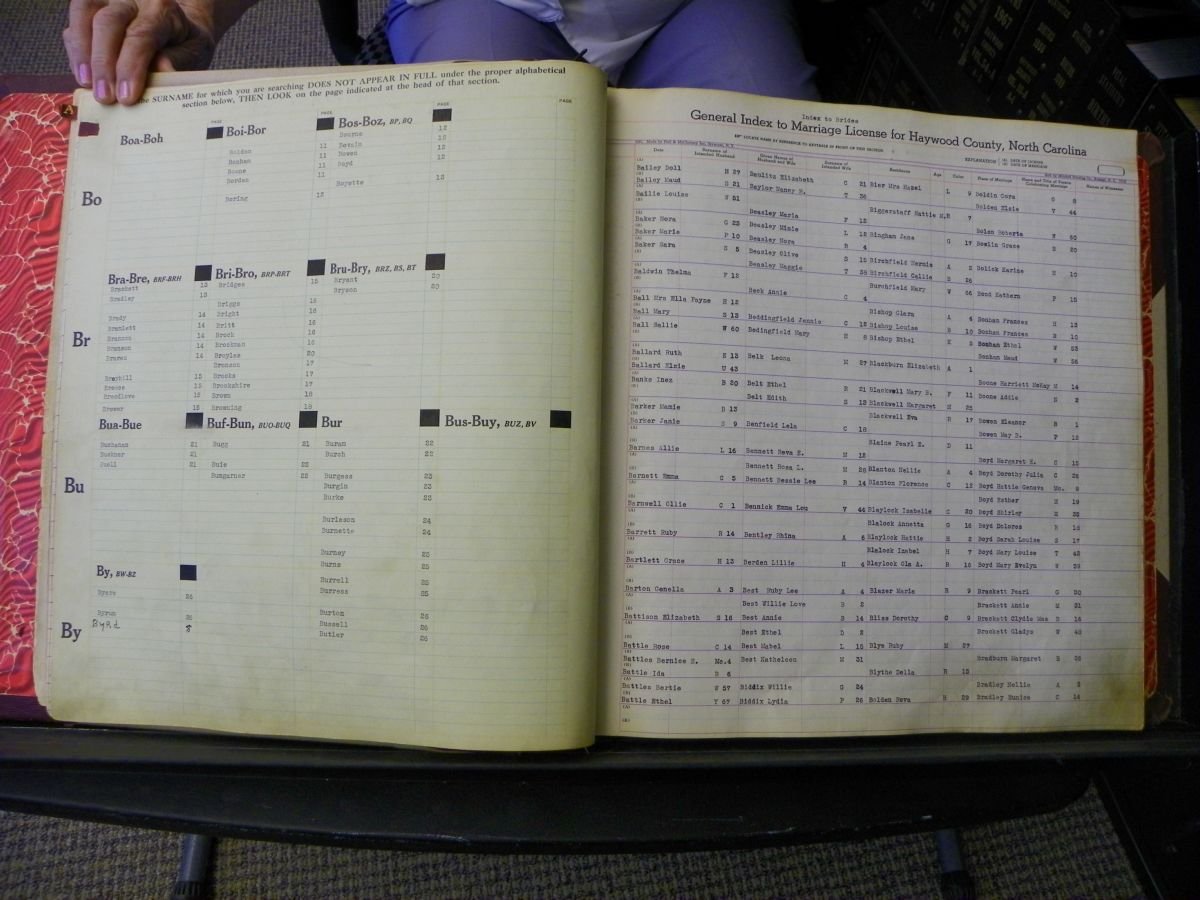 the SURNAME for which you are searching DOES NOT APPEAR IN FULL under the proper alphabetical
section below, THEN LOOK on the page indicated at the head of that section.
PAGE PAGE PAGE PAGE
A
Boa-Boh
Boi-Bor
Bos-Boz, BP, BQ
Bourne 12
Bolden 11
Bonham 11
Boone 11
Borden 11
Bowen 12
Boyd 12
Boyette 12
Boring 12
Bo
Bra-Bre, BRF-BRH
Bri-Bro, BRP-BRT
Bru-Bry, BRZ, BS, BT
Brackett 13
Bradley 13
Brady 14
Bramlett 14
Brannon 14
Branson 14
Braren 14
Brayhill 15
Breese 15
Breedlove 15
Brewer 15
Bridges 15
Briggs 16
Bright 16
Britt 16
Brock 16
Brookman 16
Broyles 20
Bronson 17
Brooks 17
Brookshire 17
Brown 18
Browning 18
Bryant 20
Bryson 20
Br
Bua-Bue
Buf-Bun, BUO-BUQ
Bur
Bus-Buy, BUZ, BV
Buchanan 21
Buckner 21
Buell 21
Bugg 21
Buie 22
Bumgarner 22
Buran 22
Burch 22
Burgess 23
Burgin 23
Burke 23
Burleson 24
Burnette 24
Burney 25
Burns 25
Burrell 25
Burress 25
Burton 26
Bussell 26
Butler 26
Bu
By, BW-BZ
Byers 26
Byrum 26
Byrd
By
Index to Brides
General Index to Marriage License for Haywood County, North Carolina
Date
Surname of Intended Husband
Given Names of Husband and Wife
Surname of Intended Wife
Residence
Age
Color
Place of Marriage
Name and Title of Person Celebrating Marriage
Names of Witnesses
EXPLANATION
Bailey Dell H 27 Beulitz Elizabeth C 21 Bier Mrs Hazel L 9 Boldin Cora O 8
Bailey Maud S 21 Baylor Nancy M. T 36 Bolden Elsie Y 44
Bailie Louise W 51 Biggerstaff Mattie M.R 7
Beasley Maria F 12 Bolen Roberta N 50
Baker Nora G 23 Beasley Minie L 12 Bingham Jane G 17 Bowlin Grace S 20
Baker Marie P 10 Beasley Nora R 4
Baker Sara S 5 Beasley Olive S 15 Birchfield Hermis A 2 Bolick Karlse H 10
Beasley Maggie T 38 Birchfield Callie S 26
Baldwin Thelma F 12 Burchfield Mary W 66 Bond Kathern P 15
Beck Annie C 4
Ball Mrs Ella Payne H 12 Bishop Clara A 4 Bonham Frances H 13
Ball Mary S 13 Beddingfield Jannie C 12 Bishop Louise B 10 Bonham Frances H 10
Ball Hallie W 60 Bedingfield Mary E 8 Bishop Ethel K 2 Bonham Ethel W 53
Bonham Maud W 56
Ballard Ruth E 13 Belk Leona M 27 Blackburn Elizabeth A 1
Ballard Elsie U 43 Boone Harriett McKay M 14
Banks Inez B 20 Belt Ethel R 21 Blackwell Mary B. F 11 Boone Addie S 2
Belt Edith S 13 Blackwell Margaret H 25
Barker Mamie D 13 Blackwell Eva R 17 Bowen Eleanor B 1
Barker Janie S 9 Benfield Lela C 18 Bowen May B. F 12
Blaine Pearl E. D 11
Barnes Allie L 16 Bennett Reva E. M 12 Boyd Margaret E. C 15
Bennett Rosa L. M 28 Blanton Nellie A 4 Boyd Dorothy Julia C 26
Barnett Emma C 5 Bennett Bessie Lee R 14 Blanton Florence C 12 Boyd Hattie Geneva Mc. 9
Boyd Esther H 19
Barnwell Ollie C 1 Bennick Emma Lou Y 44 Blaylock Isabelle C 20 Boyd Shirley H 25
Blalock Annetta G 16 Boyd Dolores R 16
Barrett Ruby R 14 Bentley Rhina A 6 Blaylock Hattie H 2 Boyd Sarah Louise S 17
Blalock Izabel H 7 Boyd Mary Louise T 42
Bartlett Grace H 13 Berden Lillie H 4 Blaylock Ola A. R 16 Boyd Mary Evelyn W 39
Barton Genella A 3 Best Ruby Lee A 4 Blazer Marie B 9 Brackett Pearl G 20
Best Willie Love B 2 Brackett Annie M 31
Battison Elizabeth S 16 Best Annie B 14 Bliss Dorothy C 9 Brackett Clydie Mae R 16
Best Ethel D 2 Brackett Gladys W 42
Battle Rose C 14 Best Mabel L 15 Blye Ruby M 27
Battles Bernice E. Mc.4 Best Katheleen M 31 Bradburn Margaret B 36
Battle Ida D 6 Blythe Della R 13
Battles Bertie W 57 Biddix Willie G 24 Bradley Nellie A 2
Battle Ethel Y 67 Biddix Lydia P 26 Bolden Neva H 29 Bradley Eunice C 14